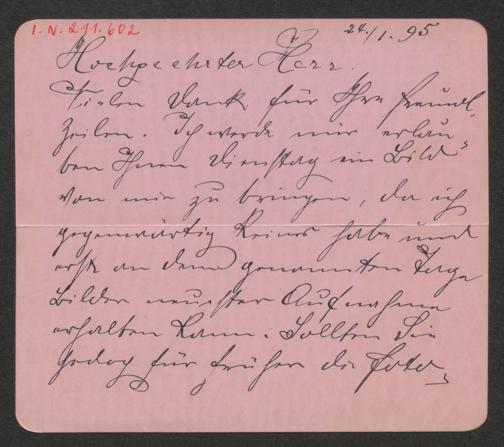 I.N. 211.602
24./1. 95
Hochgeehrter Herr.
Vielen Dank für Ihre freundl.
Zeilen. Ich werde mir erlau-
ben Ihnen Dienstag ein Bild
von mir zu bringen, da ich
gegenwärtig keines habe und
erst an dem genannten Tage
Bilder neuester Aufnahme
erhalten kann. Sollten Sie
jedoch für früher die Foto-